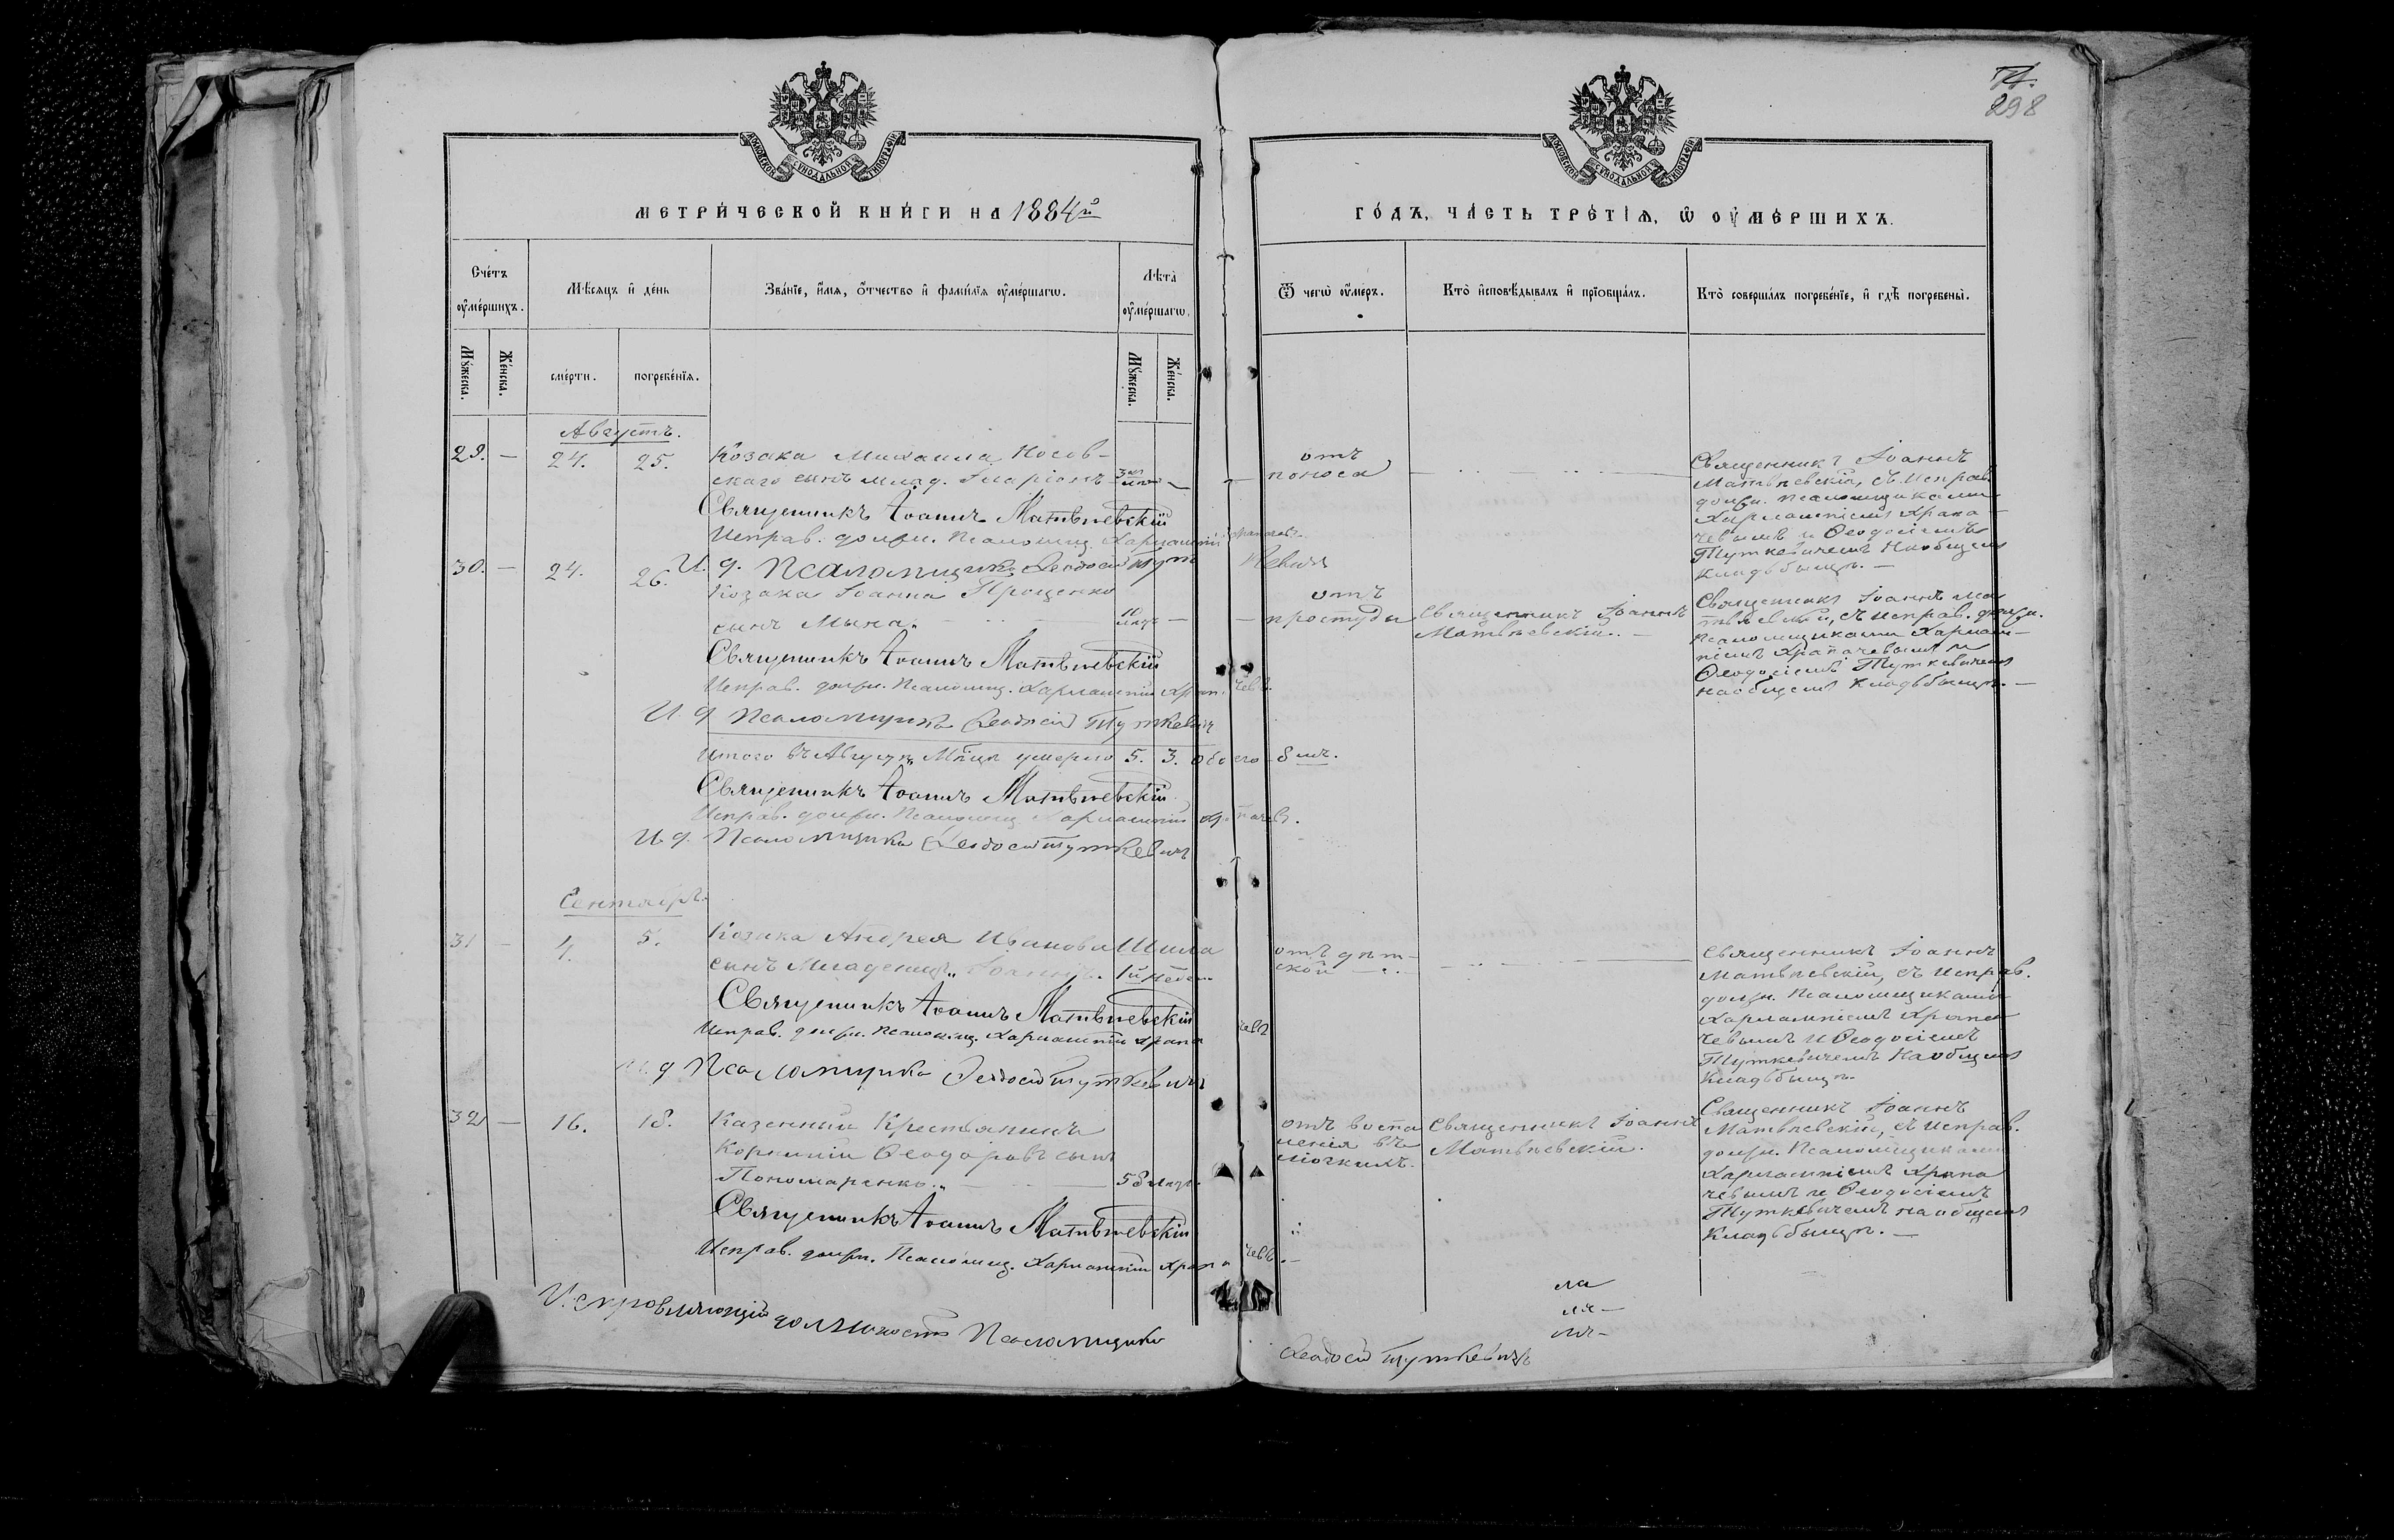 МОСКОВСКОЙ СѴНОДАЛЬНОЙ ТИПОГРАФІИ
МОСКОВСКОЙ СѴНОДАЛЬНОЙ ТИПОГРАФІИ
298
МЕТРИ́ЧЕСКОЙ КНИ́ГИ НА 1884й
ГО́ДЪ, ЧА́СТЬ ТРЕ́ТІѦ, Ѿ ОУ҆МЕ́РШИХЪ.
Сче́тъ
оу҆ме́ршихъ.
Мѣ́сяцъ и҆ де́нь
Зва́нїе, и҆́мѧ, ѻ҆́тчество и҆ фами́лїѧ оу҆ме́ршагѡ.
Лѣ́та
оу҆ме́ршагѡ.
Ѿ чегѡ̀ оу҆́меръ.
Кто̀ и҆сповѣ́дывалъ и҆ прїѡбща́лъ.
Кто̀ соверша́лъ погребе́нїе, и҆ гдѣ̀ погребены̀.
Мꙋ́жеска.
Же́нска.
сме́рти.
погребе́нїѧ.
Мꙋ́жеска.
Же́нска.
Августъ.
29. — 24. 25. Козака Михаила Носов-
скаго сынъ млад. Иларіонъ 3
отъ
поноса
Священникъ Іоаннъ
Матвѣевскій, съ исправ.
должн. псаломщиками
Харлампіемъ Храпа-
чевымъ и Ѳеодосіемъ
Туткевичемъ на общемъ
кладбищѣ. —
Священникъ Іоаннъ Матвѣевскій
Исправ. должн. Псаломщ. Харлампій Храпачевъ
И. д. Псаломщика Ѳеодосій Туткевичъ
30. — 24. 26. Козака Іоанна Прощенко
сынъ Мына 10
отъ
простуды
Священникъ Іоаннъ
Матвѣевскій. —
Священникъ Іоаннъ Ма-
твѣевскій, съ исправ. должн.
псаломщиками Харлам-
піемъ Храпачевымъ и
Ѳеодосіемъ Туткевичемъ
на общемъ кладбищѣ. —
Священникъ Іоаннъ Матвѣевскій
Исправ. должн. Псаломщ. Харлампій Храпачевъ.
И. д. Псаломщика Ѳеодосій Туткевичъ
Итого въ Августѣ М-цѣ умерло 5. 3. обоего 8мъ.
Священникъ Іоаннъ Матвѣевскій
Исправ. должн. Псаломщ. Харлампій Храпачевъ.
И. д. Псаломщика Ѳеодосій Туткевичъ
Сентябрь.
31 — 4. 5. Козака Андрея Иванова Шила
сынъ младенецъ Іоаннъ. 1й недел.
отъ дѣт-
ской
Священникъ Іоаннъ
Матвѣевскій, съ исправ.
должн. Псаломщиками
Харлампіемъ Храпа
чевымъ и Ѳеодосіемъ
Туткевичемъ на общемъ
кладбищѣ.
Священникъ Іоаннъ Матвѣевскій
Исправ. должн. Псаломщ. Харлампій Храпачевъ
И. д. Псаломщика Ѳеодосій Туткевичъ
32 — 16. 18. Казенный Крестьянинъ
Корнилій Ѳеодоровъ сынъ
Пономаренко. 58
отъ воспа
ленія въ
лёгкихъ.
Священникъ Іоаннъ
Матвѣевскій.
Священникъ Іоаннъ
Матвѣевскій, съ исправ.
должн. Псаломщиками
Харлампіемъ Храпа
чевымъ и Ѳеодосіемъ
Туткевичемъ на общемъ
кладбищѣ. —
Священникъ Іоаннъ Матвѣевскій
Исправ. должн. Псаломщ. Харлампій Храпачевъ. —
Исправляющій должность Псаломщика
Ѳеодосій Туткевичъ